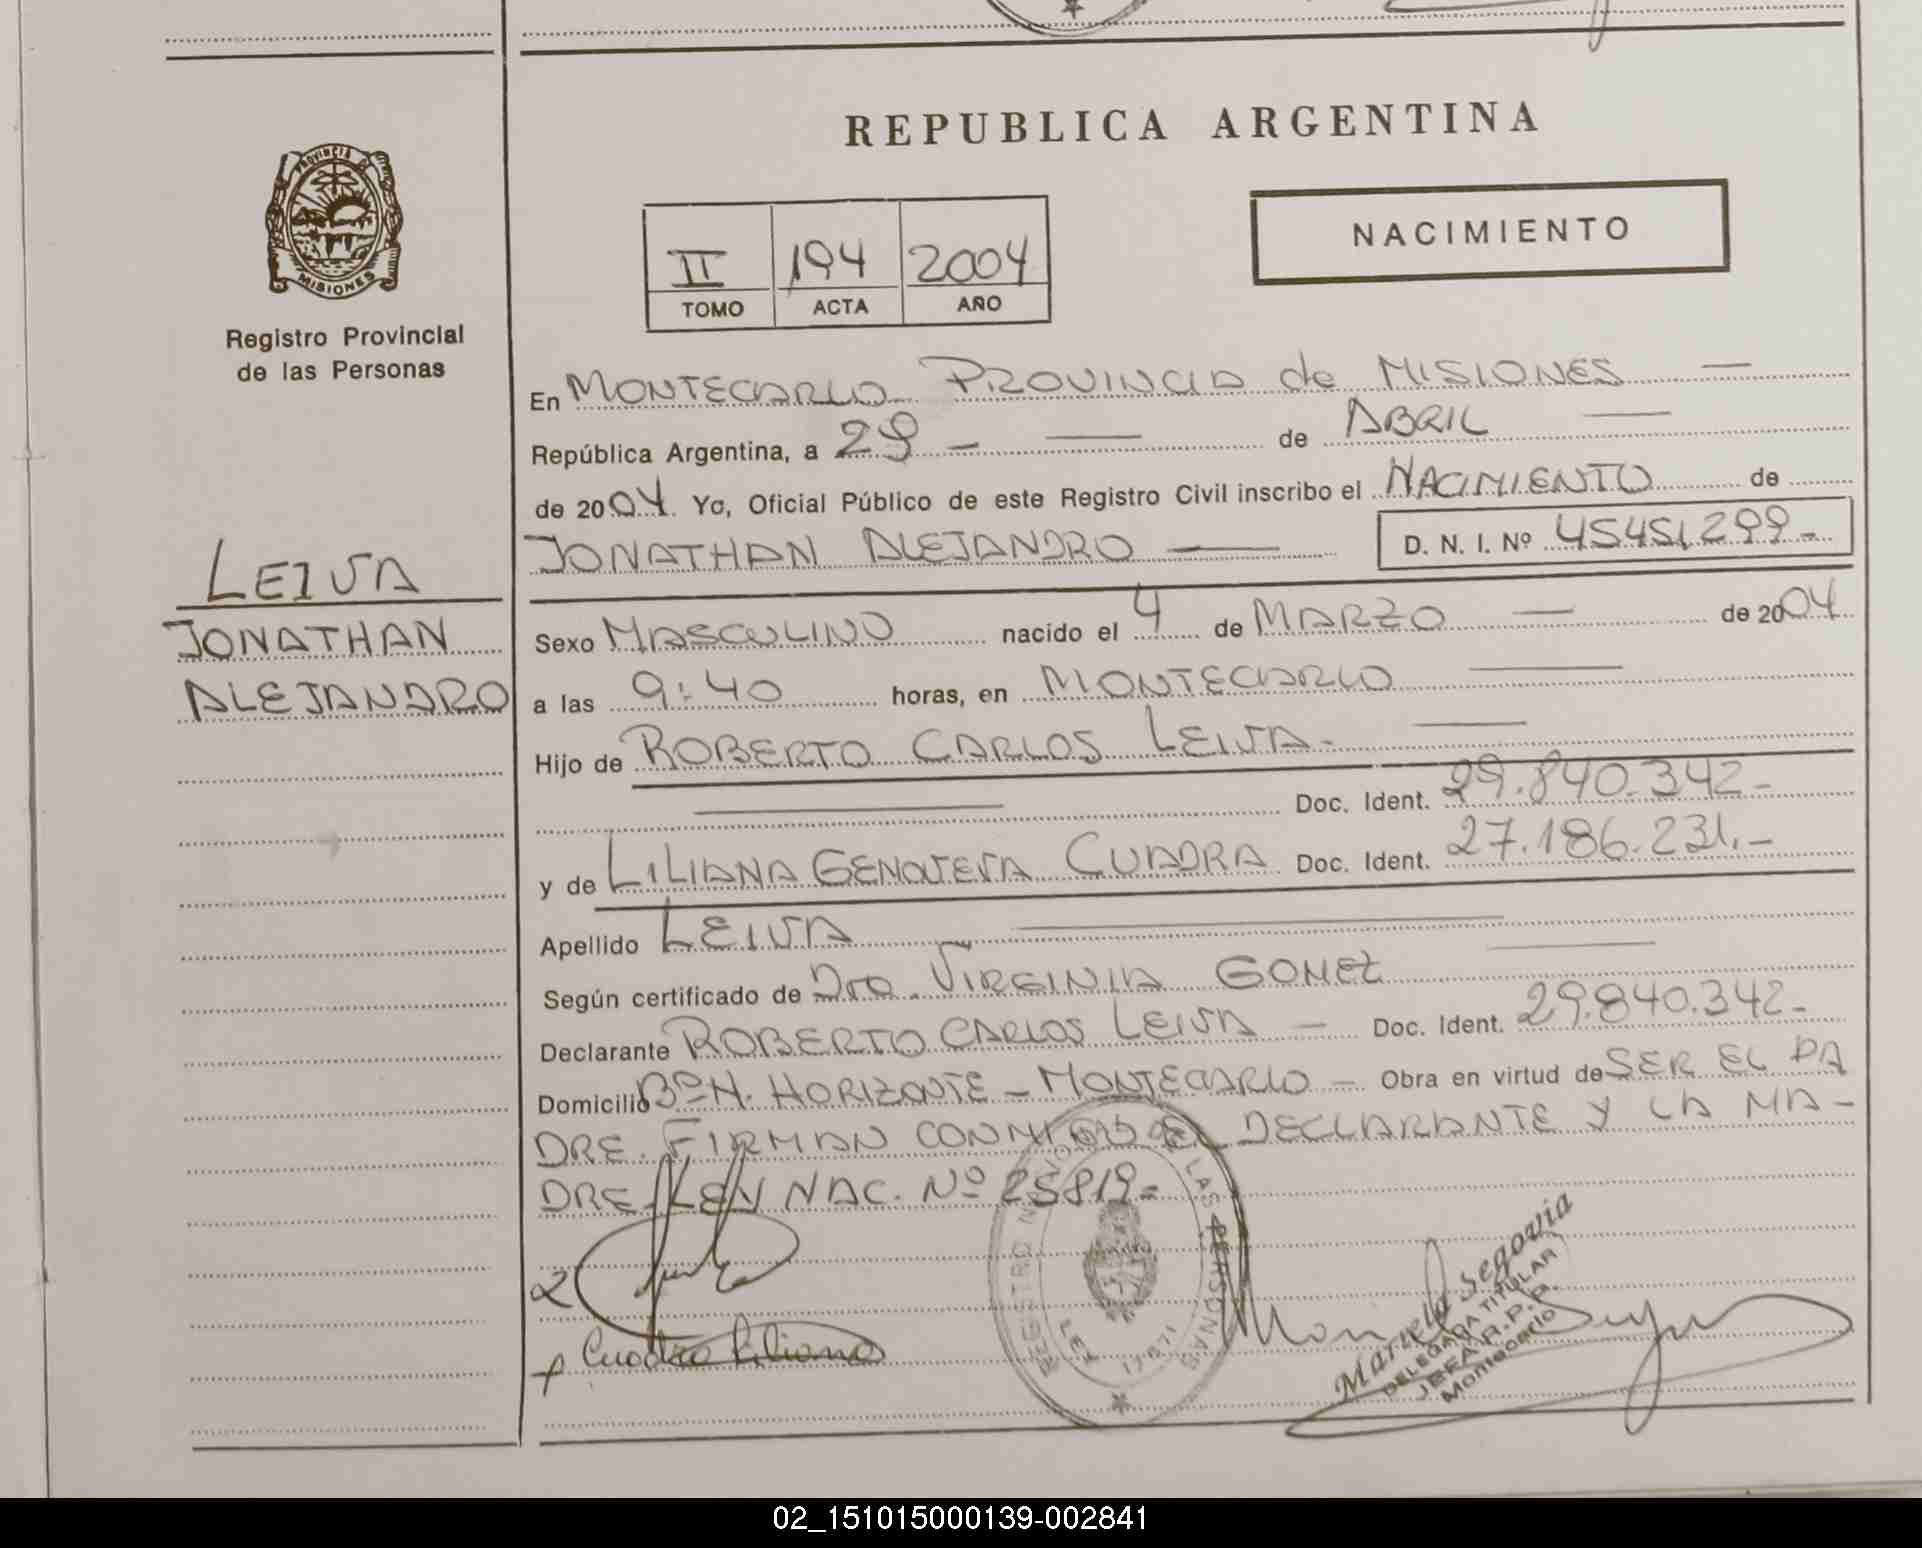 REPUBLICA ARGENTINA
PROVINCIA DE
MISIONES
Registro Provincial
de las Personas
NACIMIENTO
II 194 2004
TOMO ACTA AÑO
En MONTECARLO PROVINCIA de MISIONES —
República Argentina, a 29 — — de ABRIL —
de 2004. Yo, Oficial Público de este Registro Civil inscribo el NACIMIENTO de
JONATHAN ALEJANDRO — D. N. I. Nº 45451.299-
LEIVA
JONATHAN
ALEJANDRO
Sexo MASCULINO nacido el 4 de MARZO — de 2004
a las 9:40 horas, en MONTECARLO —
Hijo de ROBERTO CARLOS LEIVA- —
— Doc. Ident. 29.840.342-
y de LILIANA GENOVEVA CUADRA Doc. Ident. 27.186.231.-
Apellido LEIVA —
Según certificado de Dra. VIRGINIA GOMEZ —
Declarante ROBERTO CARLOS LEIVA — Doc. Ident. 29.840.342-
Domicilio Bº N. HORIZONTE - MONTECARLO - Obra en virtud de SER EL PA
DRE. FIRMAN CONMIGO EL DECLARANTE Y LA MA-
DRE LEY NAC. Nº 25819-
REGISTRO DE LAS PERSONAS
LEY
Cuadra Liliana
Mariela Segovia
DELEGADA TITULAR
JEFA R.P.P.
Montecarlo
02_151015000139-002841